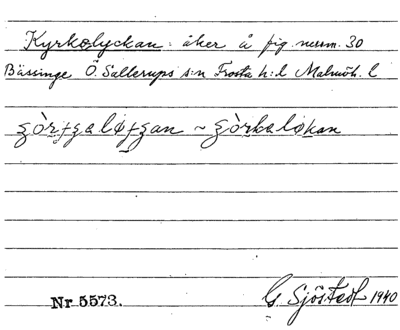 Kyrkolyckan: åker å fig. num. 30
Bässinge Ö. Sallerups s:n Frosta h:d Malmöh. l
Nr 5573.
G. Sjöstedt 1940